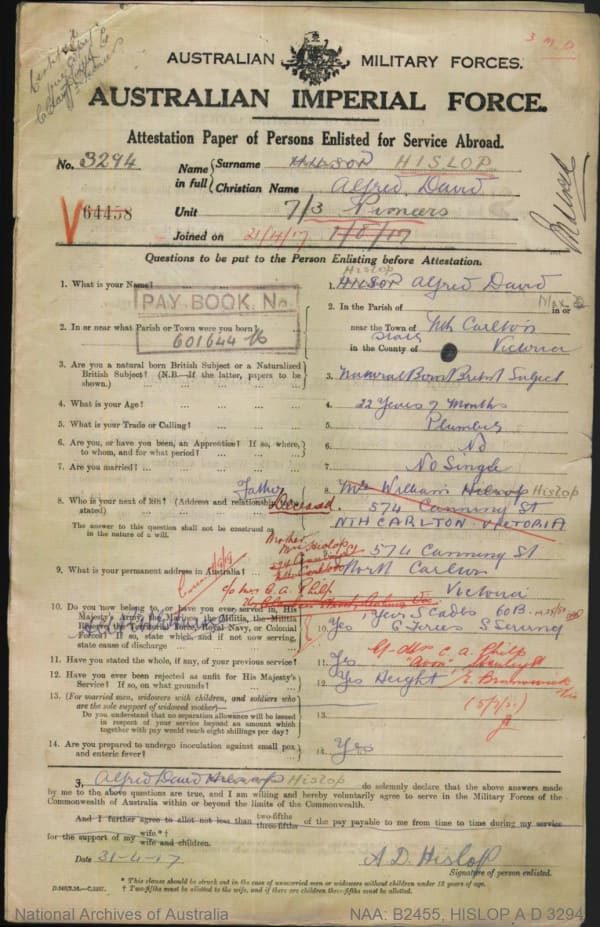 3 M.D
AUSTRALIAN MILITARY FORCES.
AUSTRALIAN IMPERIAL FORCE.
Attestation Paper of Persons Enlisted for Service Abroad.
No. 3294
Name in full { Surname HISLOP
Christian Name Alfred David
64458
Unit 7/3 Pioneers
Joined on 21/4/17
Questions to be put to the Person Enlisting before Attestation.
1. What is your Name? ... 1. Hislop Alfred David
PAY BOOK. No.
601644
2. In or near what Parish or Town were you born? ... 2. In the Parish of in or
near the Town of Nth Carlton
in the County of State Victoria
3. Are you a natural born British Subject or a Naturalized
British Subject? (N.B.—If the latter, papers to be
shown.) ... 3. Natural Born British Subject
4. What is your Age? ... 4. 22 Years 7 Months
5. What is your Trade or Calling? ... 5. Plumber
6. Are you, or have you been, an Apprentice? If so, where,
to whom, and for what period? ... 6. No
7. Are you married? ... 7. No Single
8. Who is your next of kin? (Address and relationship to be
stated) Father Deceased 8. William Hislop
574 Canning St
NTH CARLTON VICTORIA
The answer to this question shall not be construed as
in the nature of a will.
Mother
Mrs Hislop
574 Canning St
Nth Carlton
9. What is your permanent address in Australia? 574 Canning St
North Carlton
Victoria
c/o Mrs C. A. Philp
10. Do you now belong to, or have you ever served in, His
Majesty's Army, the Marines, the Militia, the Militia
Reserve, the Territorial Force, Royal Navy, or Colonial
Forces? If so, state which, and if not now serving,
state cause of discharge ... 10. Yes 1 year S Cadets 60B.
C Forces S Serving
C/- Mrs C. A. Philp
"Avon" Stanley St
E. Brunswick
11. Have you stated the whole, if any, of your previous service? 11. Yes
12. Have you ever been rejected as unfit for His Majesty's
Service? If so, on what grounds? ... 12. Yes Height
13. (For married men, widowers with children, and soldiers who
are the sole support of widowed mother—
Do you understand that no separation allowance will be issued
in respect of your service beyond an amount which
together with pay would reach eight shillings per day? 13.
14. Are you prepared to undergo inoculation against small pox
and enteric fever? ... 14. Yes
I, Alfred David Hislop do solemnly declare that the above answers made
by me to the above questions are true, and I am willing and hereby voluntarily agree to serve in the Military Forces of the
Commonwealth of Australia within or beyond the limits of the Commonwealth.
And I further agree to allot not less than two-fifths three-fifths of the pay payable to me from time to time during my service
for the support of my wife.*† wife and children.
Date 31-4-17 A. D. Hislop
Signature of person enlisted.
* This clause should be struck out in the case of unmarried men or widowers without children under 18 years of age.
† Two-fifths must be allotted to the wife, and if there are children three-fifths must be allotted.
National Archives of Australia NAA: B2455, HISLOP A D 3294